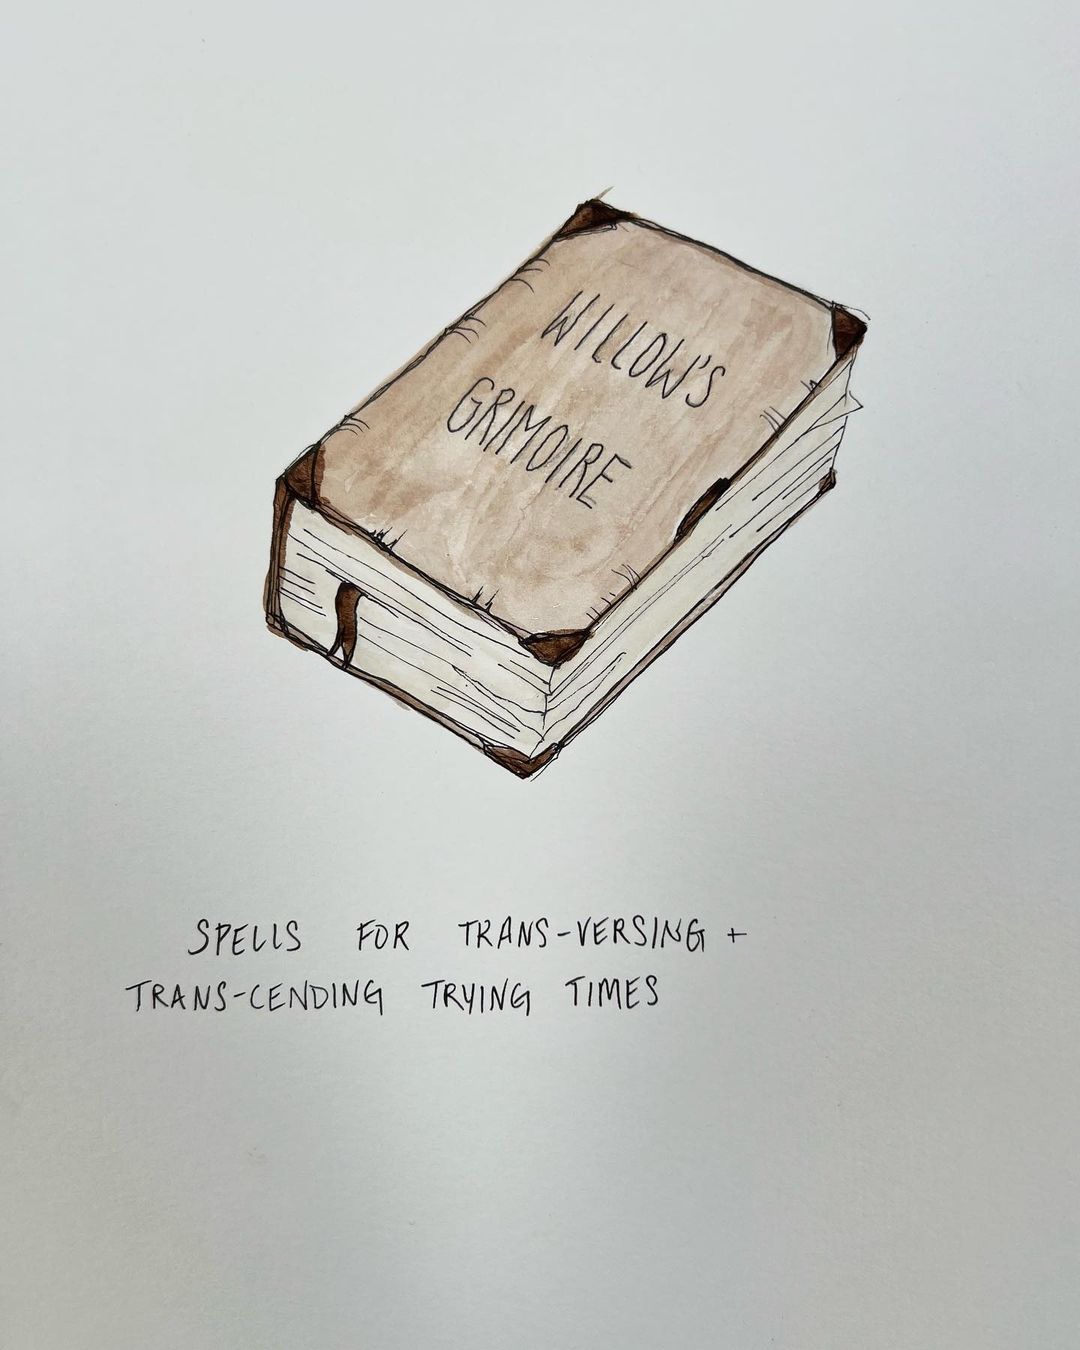 WILLOW'S
GRIMOIRE
SPELLS FOR TRANS-VERSING +
TRANS-CENDING TRYING TIMES